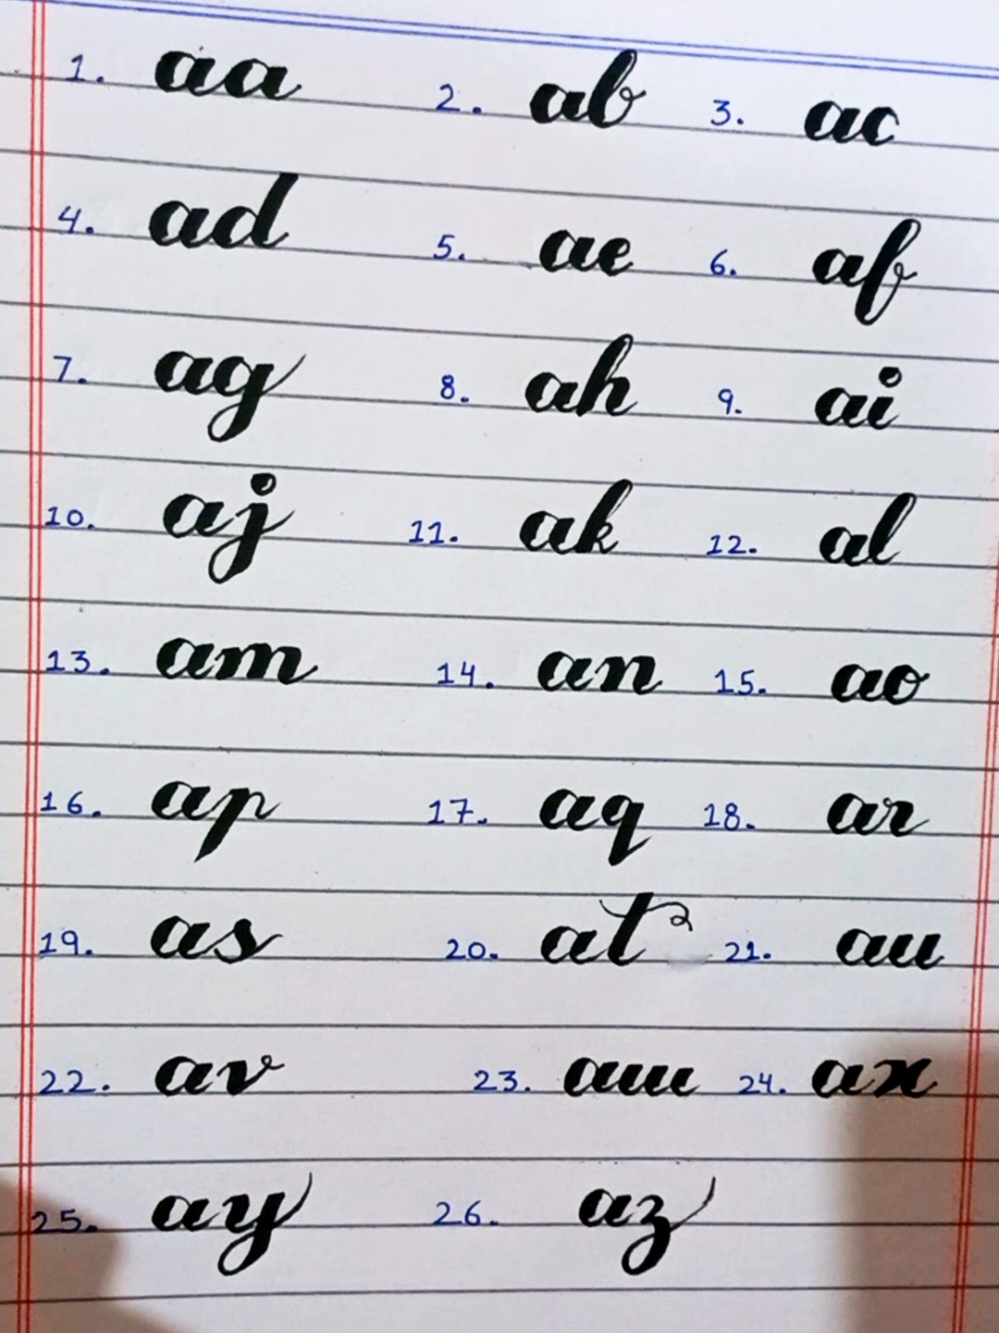 1. aa 2. ab 3. ac
4. ad 5. ae 6. af
7. ag 8. ah 9. ai
10. aj 11. ak 12. al
13. am 14. an 15. ao
16. ap 17. aq 18. ar
19. as 20. at 21. au
22. av 23. aw 24. ax
25. ay 26. az